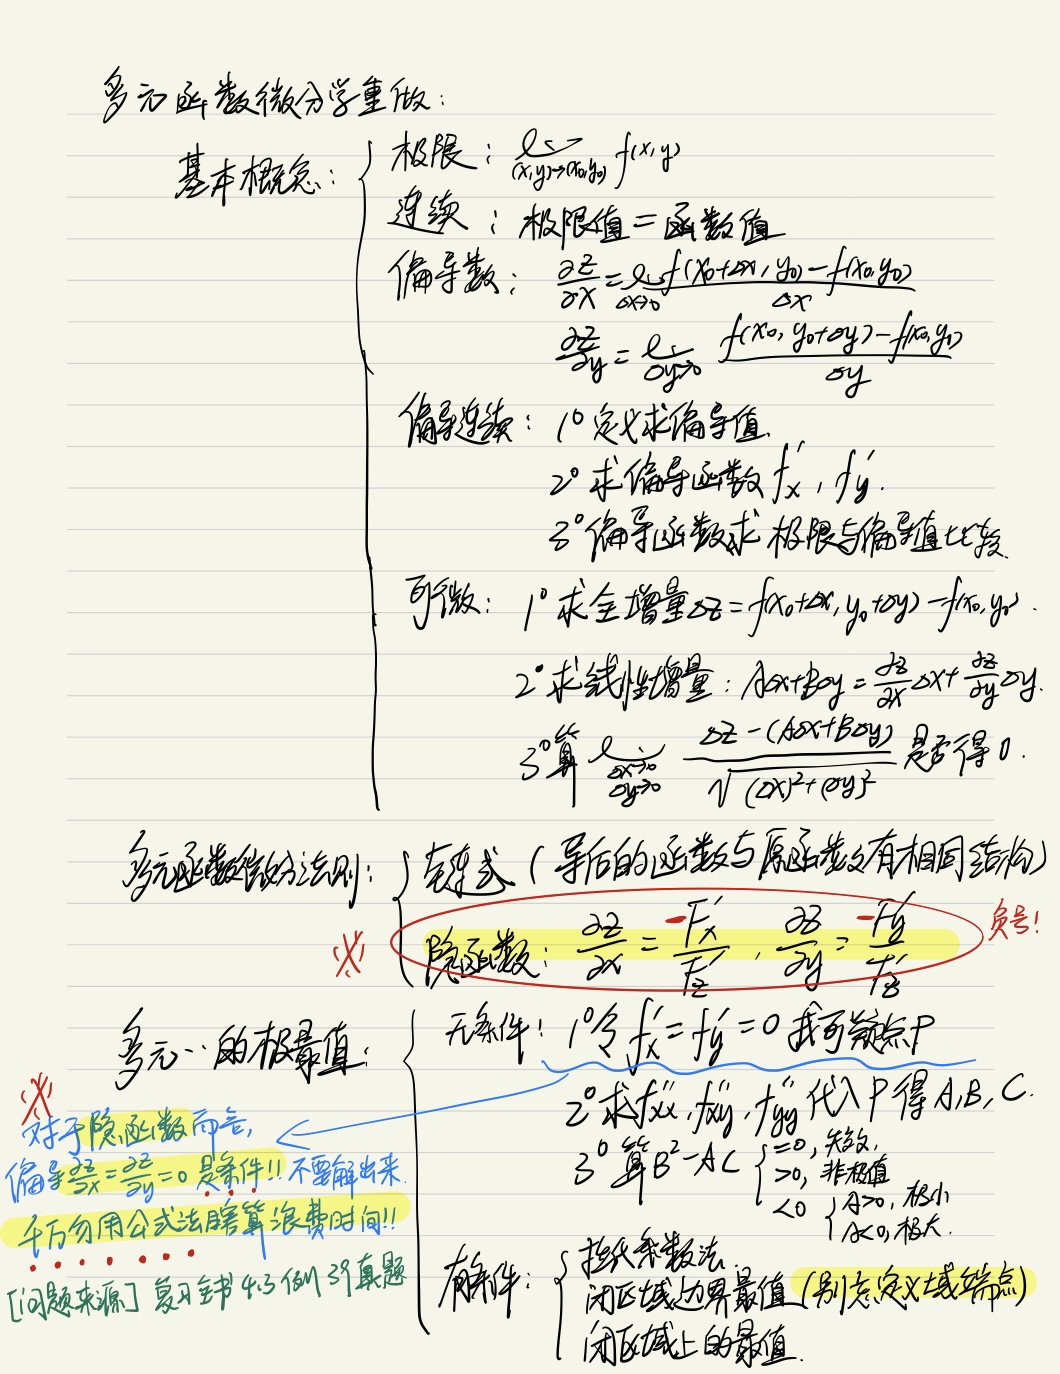 多元函数微分学重做：
基本概念：
极限：lim (x,y)→(x₀,y₀) f(x,y)
连续：极限值=函数值
偏导数：∂z/∂x = lim Δx→0 f(x₀+Δx, y₀)-f(x₀,y₀)/Δx
∂z/∂y = lim Δy→0 f(x₀, y₀+Δy)-f(x₀,y₀)/Δy
偏导连续：1° 定义求偏导值.
2° 求偏导函数 f'x, f'y.
3° 偏导函数求极限与偏导值比较.
可微：1° 求全增量 Δz=f(x₀+Δx, y₀+Δy)-f(x₀,y₀).
2° 求线性增量：AΔx+BΔy=∂z/∂x Δx+∂z/∂y Δy.
3° 算 lim Δx→0 Δy→0 Δz-(AΔx+BΔy)/√(Δx)²+(Δy)² 是否得0.
多元函数微分法则：
链式（导后的函数与原函数有相同结构）
※ 隐函数：∂z/∂x = -F'x/F'z, ∂z/∂y = -F'y/F'z 负号！
多元…的极最值：
无条件：1° 令 f'x=f'y=0 找可疑点P
2° 求f''xx, f''xy, f''yy 代入P得A, B, C.
3° 算B²-AC
=0, 失效.
>0, 非极值
<0
A>0, 极小
A<0, 极大.
※
对于隐函数而言,
偏导∂z/∂x=∂z/∂y=0 是条件!! 不要解出来.
千万勿用公式法瞎算浪费时间!!
[问题来源] 复习全书 4.3 例39真题
有条件：
拉氏乘数法.
闭区域边界最值（别忘定义域端点）
闭区域上的最值.